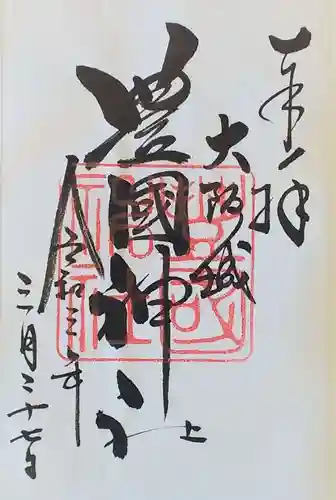 奉拝
大阪城
豊國神社
令和三年
三月三十七日
上